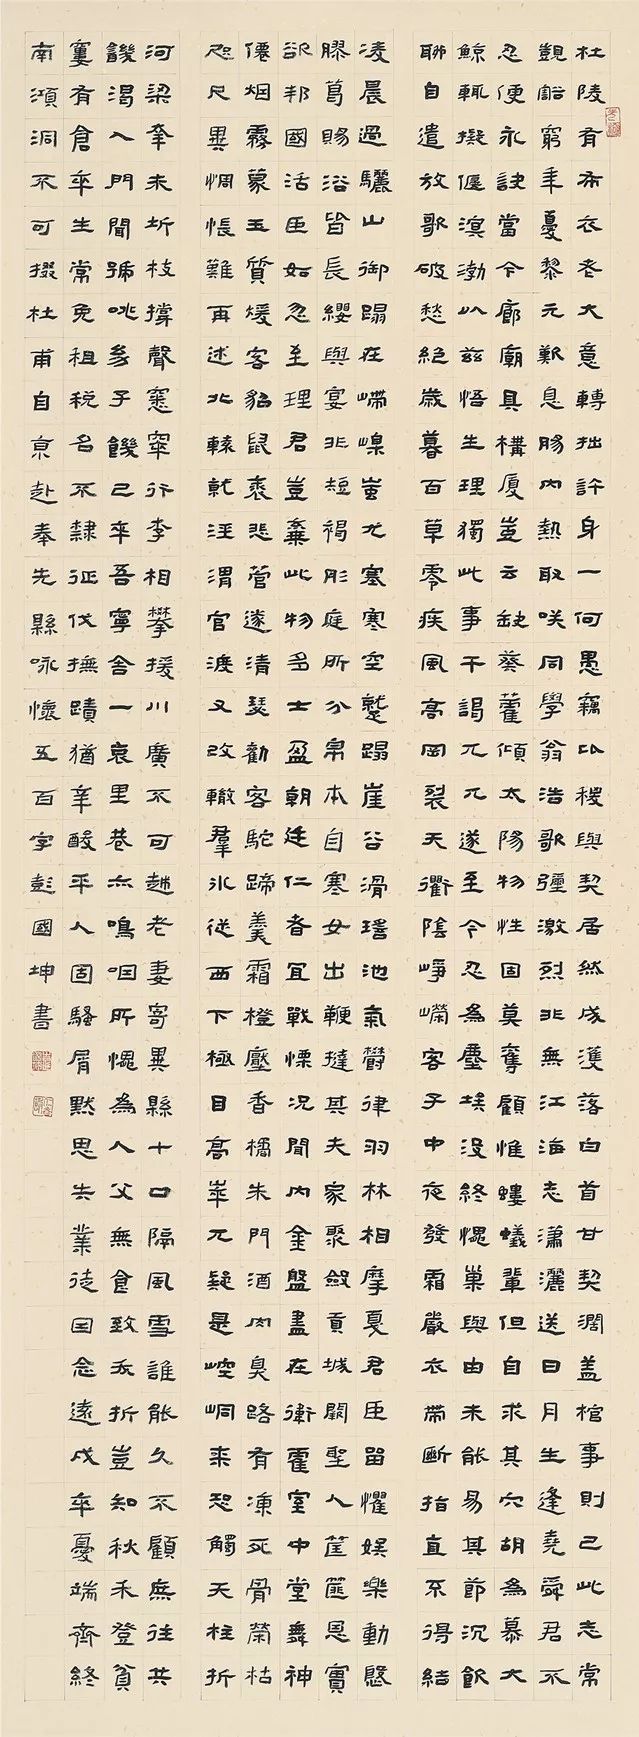 杜陵有布衣老大意轉拙許身一何愚竊比稷與契居然成濩落白首甘契濶盖棺事則已此志常
覬豁窮年憂黎元歎息腸内熱取咲同學翁浩歌彌激烈非無江海志瀟灑送日月生逢堯舜君不
忍便永訣當今廊廟具構厦豈云缺葵藿傾太陽物性固莫奪顧惟螻蟻輩但自求其穴胡為慕大
鯨輒擬偃溟渤以兹悟生理獨此事干謁兀兀遂至今忍為塵埃没終愧巢與由未能易其節沉飲
聊自遣放歌破愁絶歲暮百草零疾風高岡裂天衢陰崢嶸客子中夜發霜嚴衣帶斷指直不得結
凌晨過驪山御蹋在嵽嵲蚩尤塞寒空蹴蹋崖谷滑瑶池氣鬱律羽林相摩戛君臣留懽娱樂動慇
膠葛賜浴皆長纓與宴非短褐彤庭所分帛本自寒女出鞭撻其夫家聚斂貢城闕聖人筐篚恩實
欲邦國活臣如忽至理君豈棄此物多士盈朝廷仁者宜戰慄况聞内金盤盡在衛霍室中堂舞神
僊烟霧蒙玉質煖客貂鼠裘悲管逐清瑟勸客駝蹄羹霜橙壓香橘朱門酒肉臭路有凍死骨榮枯
咫尺異惆悵難再述北轅就涇渭官渡又改轍羣氷從西下極目高崒兀疑是崆峒来恐觸天柱折
河梁幸未坼枝撑聲窸窣行李相攀援川廣不可越老妻寄異縣十口隔風雪誰能久不顧庶往共
饑渴入門聞號咷幼子饑已卒吾寧舍一哀里巷亦鳴咽所愧為人父無食致夭折豈知秋禾登貧
窶有倉卒生常免租税名不隸征伐撫蹟猶辛酸平人固騷屑默思失業徒因念遠戍卒憂端齊終
南澒洞不可掇杜甫自京赴奉先縣咏懷五百字彭國坤書